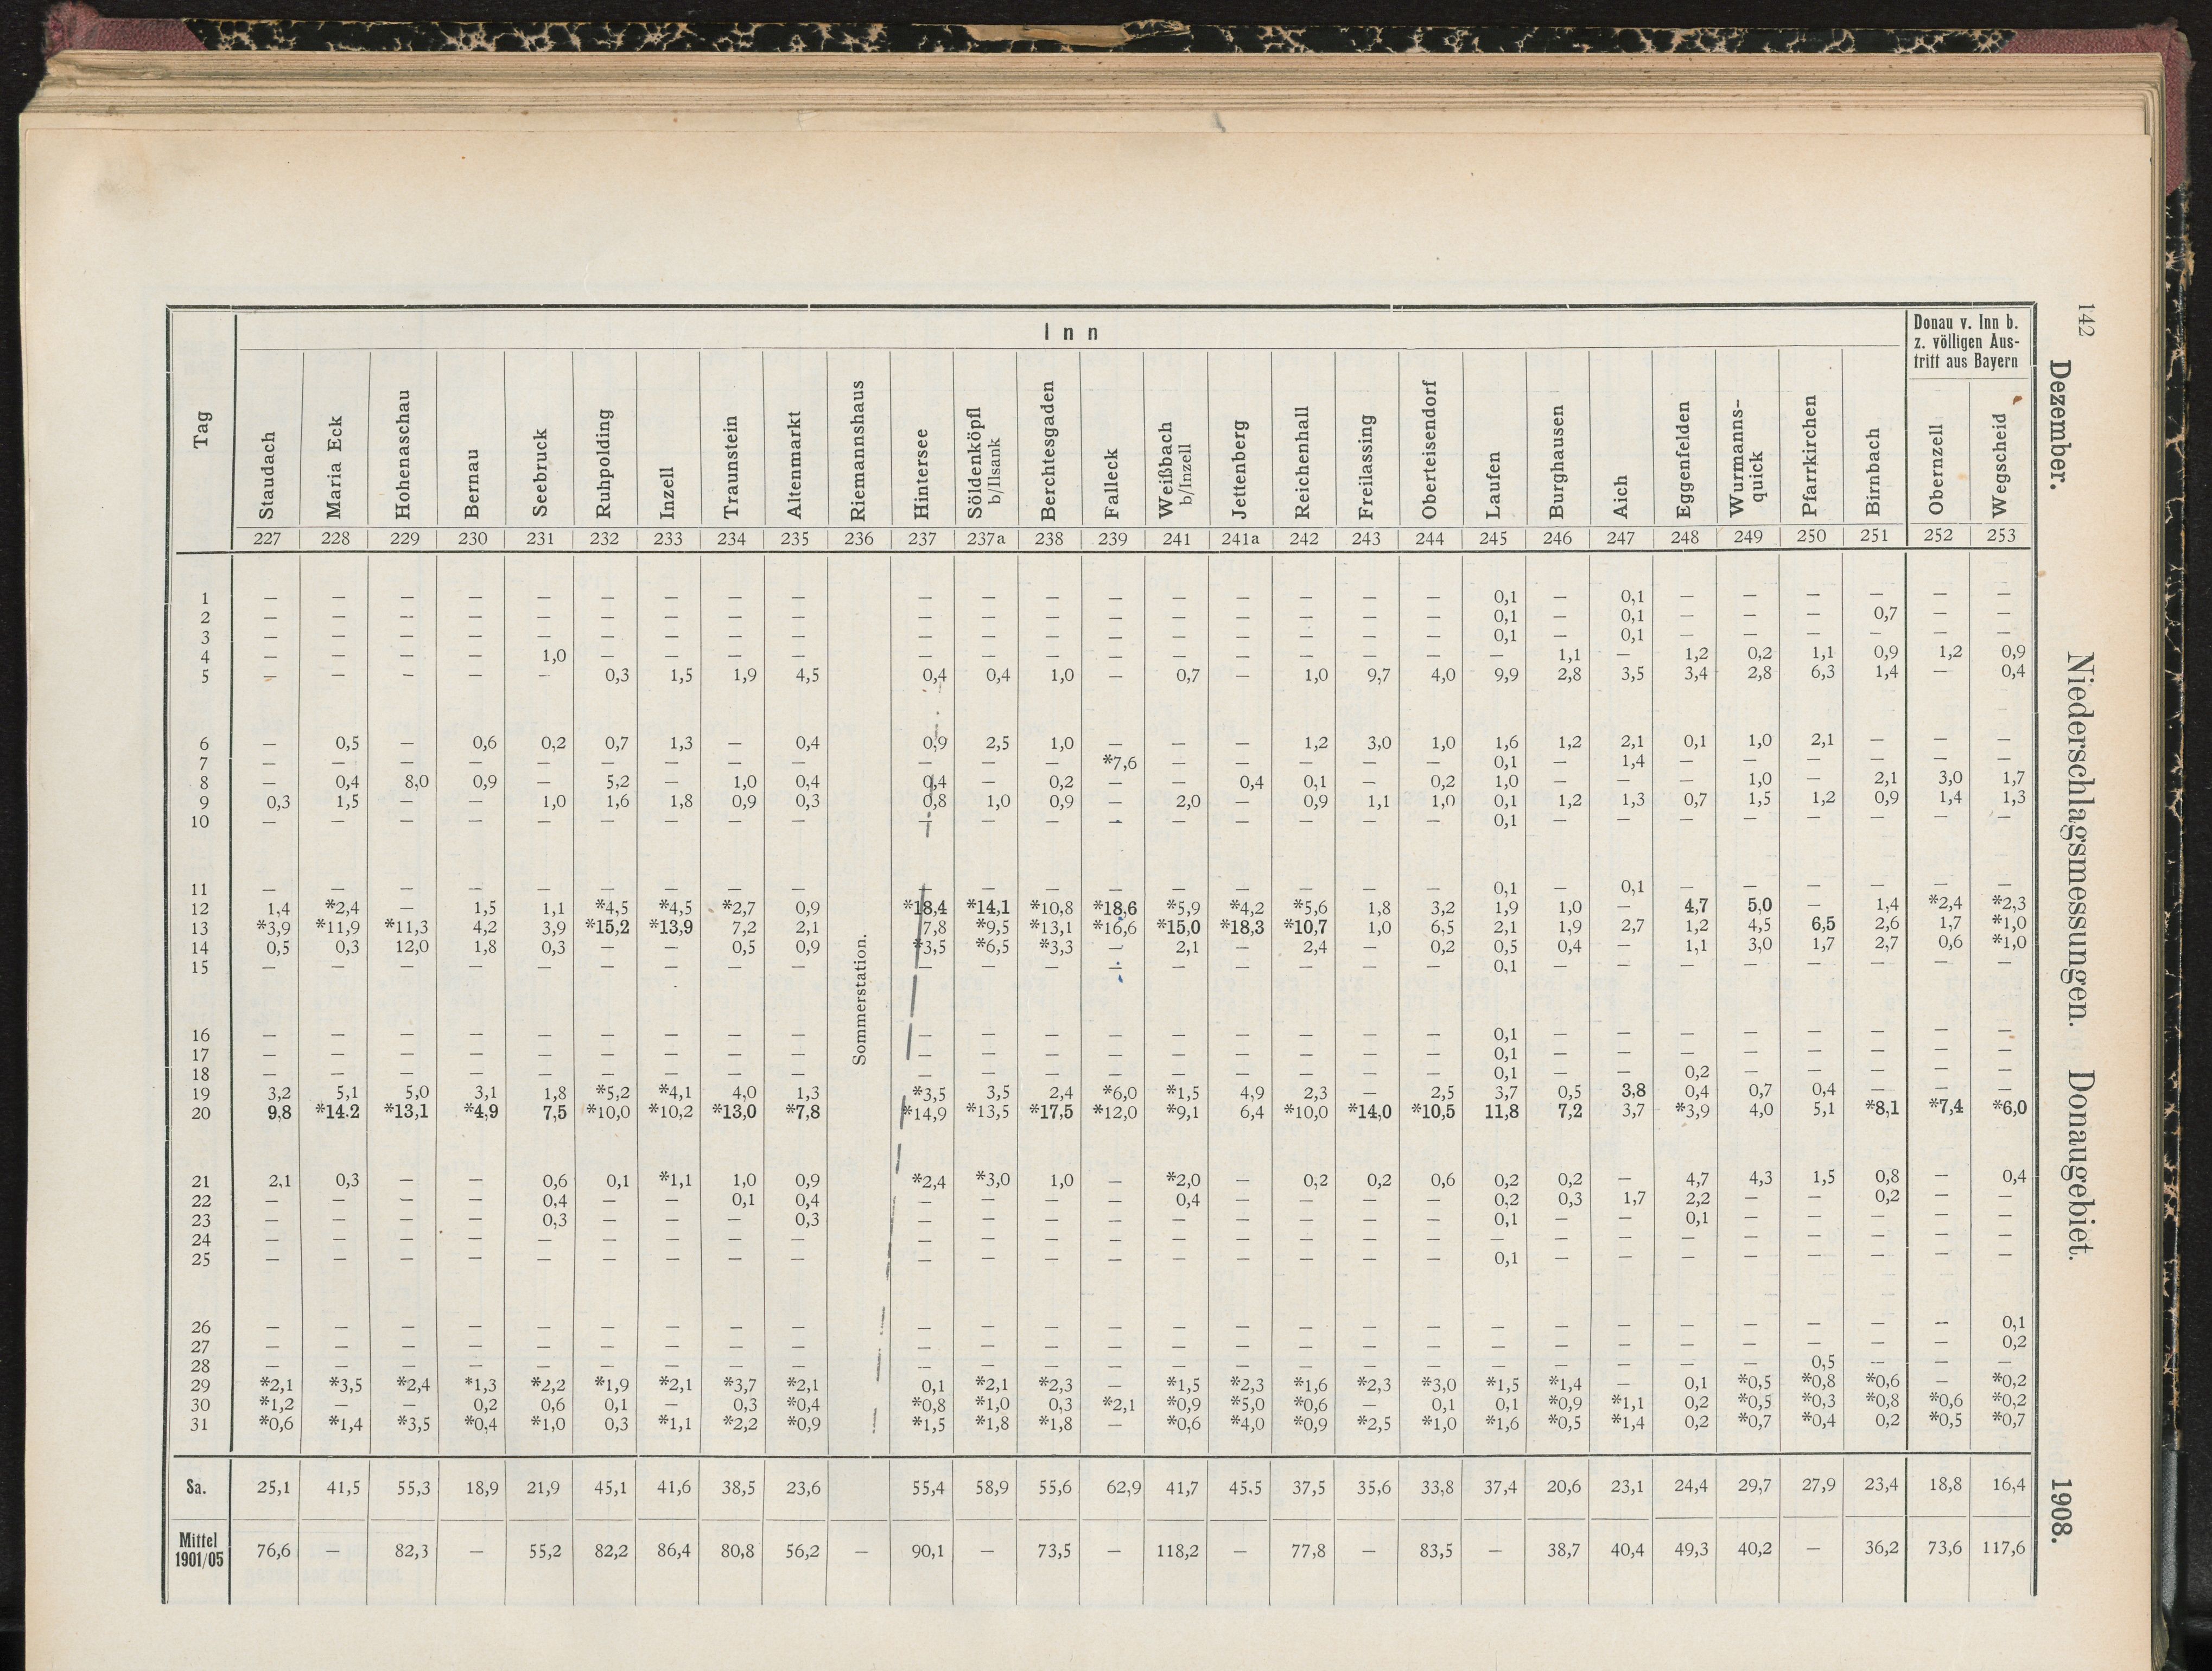 142
Dezember.
Niederschlagsmessungen. Donaugebiet.
1908.
Tag
Inn
Donau v. Inn b.
z. völligen Aus-
tritt aus Bayern
Staudach Maria Eck Hohenaschau Bernau Seebruck Ruhpolding Inzell Traunstein Altenmarkt Riemannshaus Hintersee Söldenköpfl b/Ilsank Berchtesgaden Falleck Weißbach b/Inzell Jettenberg Reichenhall Freilassing Oberteisendorf Laufen Burghausen Aich Eggenfelden Wurmanns-quick Pfarrkirchen Birnbach Obernzell Wegscheid
227 228 229 230 231 232 233 234 235 236 237 237a 238 239 241 241a 242 243 244 245 246 247 248 249 250 251 252 253
1 — — — — — — — — — — — — — — — — — — 0,1 — 0,1 — — — — — —
2 — — — — — — — — — — — — — — — — — — 0,1 — 0,1 — — — 0,7 — —
3 — — — — — — — — — — — — — — — — — — 0,1 — 0,1 — — — — — —
4 — — — — 1,0 — — — — — — — — — — — — — — 1,1 — 1,2 0,2 1,1 0,9 1,2 0,9
5 — — — — — 0,3 1,5 1,9 4,5 0,4 0,4 1,0 — 0,7 — 1,0 9,7 4,0 9,9 2,8 3,5 3,4 2,8 6,3 1,4 — 0,4
6 — 0,5 — 0,6 0,2 0,7 1,3 — 0,4 0,9 2,5 1,0 — — — 1,2 3,0 1,0 1,6 1,2 2,1 0,1 1,0 2,1 — — —
7 — — — — — — — — — — — — *7,6 — — — — — 0,1 — 1,4 — — — — — —
8 — 0,4 8,0 0,9 — 5,2 — 1,0 0,4 0,4 — 0,2 — — 0,4 0,1 — 0,2 1,0 — — — 1,0 — 2,1 3,0 1,7
9 0,3 1,5 — — 1,0 1,6 1,8 0,9 0,3 0,8 1,0 0,9 — 2,0 — 0,9 1,1 1,0 0,1 1,2 1,3 0,7 1,5 1,2 0,9 1,4 1,3
10 — — — — — — — — — — — — — — — — — — 0,1 — — — — — — — —
11 — — — — — — — — — — — — — — — — — — 0,1 — 0,1 — — — — — —
12 1,4 *2,4 — 1,5 1,1 *4,5 *4,5 *2,7 0,9 *18,4 *14,1 *10,8 *18,6 *5,9 *4,2 *5,6 1,8 3,2 1,9 1,0 — 4,7 5,0 — 1,4 *2,4 *2,3
13 *3,9 *11,9 *11,3 4,2 3,9 *15,2 *13,9 7,2 2,1 7,8 *9,5 *13,1 *16,6 *15,0 *18,3 *10,7 1,0 6,5 2,1 1,9 2,7 1,2 4,5 6,5 2,6 1,7 *1,0
14 0,5 0,3 12,0 1,8 0,3 — — 0,5 0,9 *3,5 *6,5 *3,3 — 2,1 — 2,4 — 0,2 0,5 0,4 — 1,1 3,0 1,7 2,7 0,6 *1,0
15 — — — — — — — — — — — — — — — — — — 0,1 — — — — — — — —
Sommerstation.
16 — — — — — — — — — — — — — — — — — — 0,1 — — — — — — — —
17 — — — — — — — — — — — — — — — — — — 0,1 — — — — — — — —
18 — — — — — — — — — — — — — — — — — — 0,1 — — 0,2 — — — — —
19 3,2 5,1 5,0 3,1 1,8 *5,2 *4,1 4,0 1,3 *3,5 3,5 2,4 *6,0 *1,5 4,9 2,3 — 2,5 3,7 0,5 3,8 0,4 0,7 0,4 — — —
20 9,8 *14.2 *13,1 *4,9 7,5 *10,0 *10,2 *13,0 *7,8 *14,9 *13,5 *17,5 *12,0 *9,1 6,4 *10,0 *14,0 *10,5 11,8 7,2 3,7 *3,9 4,0 5,1 *8,1 *7,4 *6,0
21 2,1 0,3 — — 0,6 0,1 *1,1 1,0 0,9 *2,4 *3,0 1,0 — *2,0 — 0,2 0,2 0,6 0,2 0,2 — 4,7 4,3 1,5 0,8 — 0,4
22 — — — — 0,4 — — 0,1 0,4 — — — — 0,4 — — — — 0,2 0,3 1,7 2,2 — — 0,2 — —
23 — — — — 0,3 — — — 0,3 — — — — — — — — — 0,1 — — 0,1 — — — — —
24 — — — — — — — — — — — — — — — — — — — — — — — — — — —
25 — — — — — — — — — — — — — — — — — — 0,1 — — — — — — — —
26 — — — — — — — — — — — — — — — — — — — — — — — — — — 0,1
27 — — — — — — — — — — — — — — — — — — — — — — — — — — 0,2
28 — — — — — — — — — — — — — — — — — — — — — — — 0,5 — — —
29 *2,1 *3,5 *2,4 *1,3 *2,2 *1,9 *2,1 *3,7 *2,1 0,1 *2,1 *2,3 — *1,5 *2,3 *1,6 *2,3 *3,0 *1,5 *1,4 — 0,1 *0,5 *0,8 *0,6 — *0,2
30 *1,2 — — 0,2 0,6 0,1 — 0,3 *0,4 *0,8 *1,0 0,3 *2,1 *0,9 *5,0 *0,6 — 0,1 0,1 *0,9 *1,1 0,2 *0,5 *0,3 *0,8 *0,6 *0,2
31 *0,6 *1,4 *3,5 *0,4 *1,0 0,3 *1,1 *2,2 *0,9 *1,5 *1,8 *1,8 — *0,6 *4,0 *0,9 *2,5 *1,0 *1,6 *0,5 *1,4 0,2 *0,7 *0,4 0,2 *0,5 *0,7
Sa. 25,1 41,5 55,3 18,9 21,9 45,1 41,6 38,5 23,6 55,4 58,9 55,6 62,9 41,7 45.5 37,5 35,6 33,8 37,4 20,6 23,1 24,4 29,7 27,9 23,4 18,8 16,4
Mittel
1901/05 76,6 — 82,3 — 55,2 82,2 86,4 80,8 56,2 — 90,1 — 73,5 — 118,2 — 77,8 — 83,5 — 38,7 40,4 49,3 40,2 — 36,2 73,6 117,6